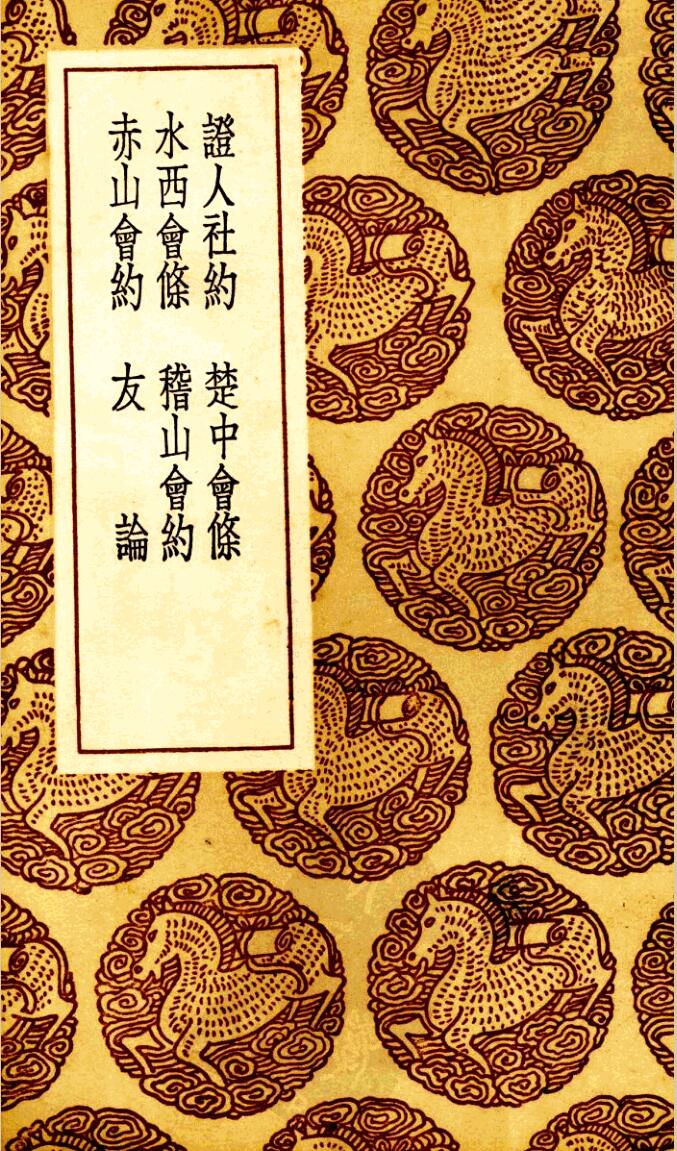 證人社約 楚中會條
水西會條 稽山會約
赤山會約 友論